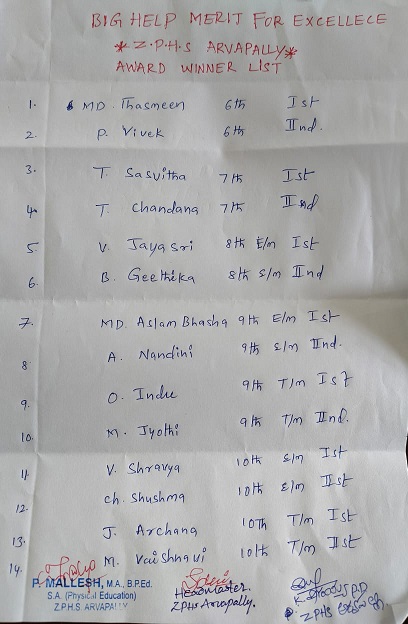 BIG HELP MERIT FOR EXCELLECE
*Z.P.H.S ARVAPALLY*
AWARD WINNER LIST
1. MD. Thasmeen 6th Ist
2. P. Vivek 6th IInd.
3. T. Sasvitha 7th Ist
4. T. Chandana 7th IInd
5. V. Jayasri 8th E/m Ist
6. B. Geethika 8th E/m IInd
7. MD. Aslam Bhasha 9th E/m Ist
8. A. Nandini 9th E/m IInd.
9. O. Indu 9th T/m Ist
10. M. Jyothi 9th T/m IInd.
11. V. Shravya 10th E/m Ist
12. Ch. Shushma 10th E/m IIst
13. J. Archana 10Th T/m Ist
14. M. Vaishnavi 10th T/m IIst
P. MALLESH, M.A., B.P.Ed.
S.A. (Physical Education)
Z.P.H.S. ARVAPALLY
Headmaster.
ZPHS Arvapally.
P.D
ZPHS